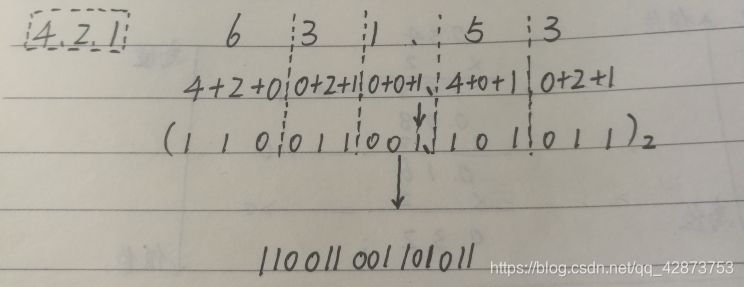 4.2.1 6 3 1 . 5 3
4+2+0 0+2+1 0+0+1. 4+0+1 0+2+1
(1 1 0 0 1 1 0 0 1. 1 0 1 0 1 1)2
110011001101011
https://blog.csdn.net/qq_42873753